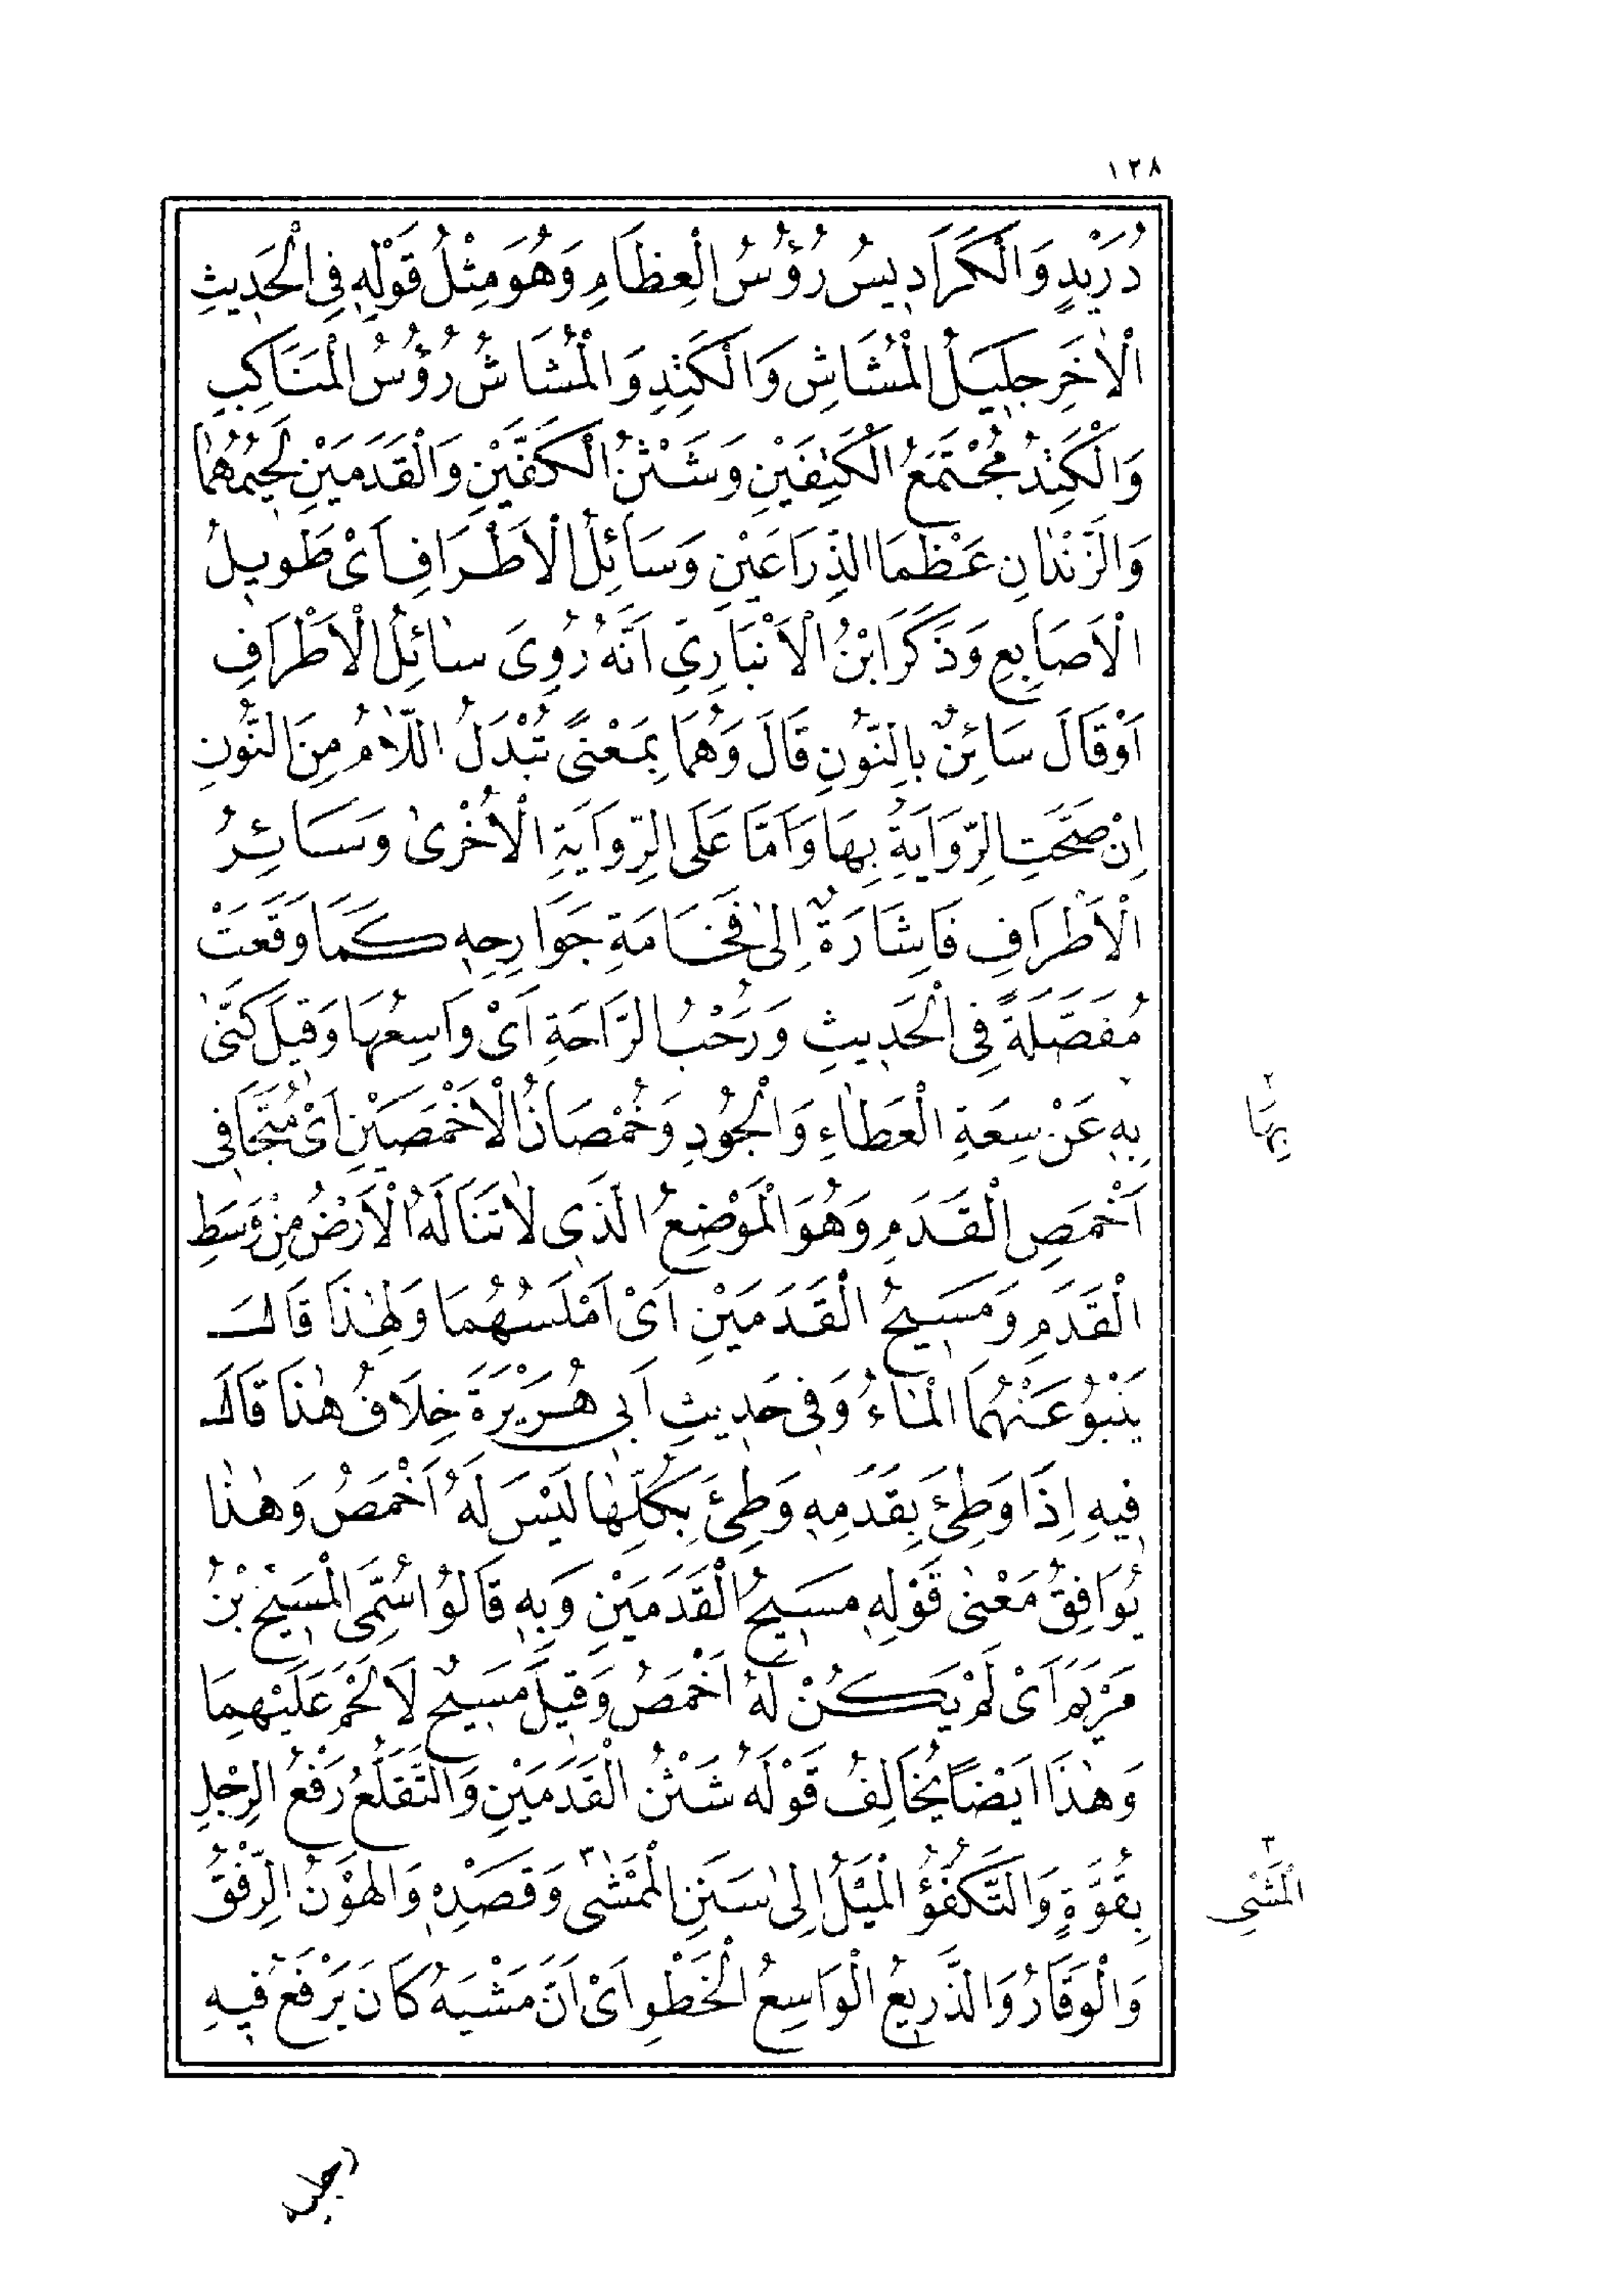 ١٢٨
دُرَيْدٍ وَالْكَرَادِيسُ رُؤُسُ الْعِظَامِ وَهُوَ مِثْلُ قَوْلِهِ فِى الْحَدِيثِ
الْاٰخَرِ جَلِيلُ الْمُشَاشِ وَالْكَتِدِ وَالْمُشَاشُ رُؤُسُ الْمَنَاكِبِ
وَالْكَتِدُ مُجْتَمَعُ الْكَتِفَيْنِ وَشَثْنُ الْكَفَّيْنِ وَالْقَدَمَيْنِ لَحِيمُهُمَا
وَالزَّنْدَانِ عَظْمَا الذِّرَاعَيْنِ وَسَائِلُ الْاَطْرَافِ اَىْ طَوِيلُ
الْاَصَابِعِ وَذَكَرَ ابْنُ الْاَنْبَارِىِّ اَنَّهُ رُوِىَ سَائِلُ الْاَطْرَافِ
اَوْ قَالَ سَائِنٌ بِالنُّونِ قَالَ وَهُمَا بِمَعْنًى تُبْدَلُ اللَّامُ مِنَ النُّونِ
اِنْ صَحَّتِ الرِّوَايَةُ بِهَا وَاَمَّا عَلَى الرِّوَايَةِ الْاُخْرٰى وَسَائِرُ
الْاَطْرَافِ فَاِشَارَةٌ اِلٰى فَخَامَةِ جَوَارِحِهِ كَمَا وَقَعَتْ
مُفَصَّلَةً فِى الْحَدِيثِ وَرَحْبُ الرَّاحَةِ اَىْ وَاسِعُهَا وَقِيلَ كَنّٰى
بِهِ عَنْ سِعَةِ الْعَطَاءِ وَالْجُودِ وَخُمْصَانُ الْاَخْمَصَيْنِ اَىْ مُتَجَافِى
٢
بِهَا
اَخْمَصِ الْقَدَمِ وَهُوَ الْمَوْضِعُ الَّذِى لَا تَنَالُهُ الْاَرْضُ مِنْ وَسَطِ
الْقَدَمِ وَمَسِيحُ الْقَدَمَيْنِ اَىْ اَمْلَسُهُمَا وَلِهٰذَا قَالَ
يَنْبُو عَنْهُمَا الْمَاءُ وَفِى حَدِيثِ اَبِى هُرَيْرَةَ خِلَافُ هٰذَا قَالَ
فِيهِ اِذَا وَطِئَ بِقَدَمِهِ وَطِئَ بِكُلِّهَا لَيْسَ لَهُ اَخْمَصُ وَهٰذَا
يُوَافِقُ مَعْنٰى قَوْلِهِ مَسِيحُ الْقَدَمَيْنِ وَبِهِ قَالُوا سُمِّىَ الْمَسِيحُ بْنُ
مَرْيَمَ اَىْ لَمْ يَكُنْ لَهُ اَخْمَصُ وَقِيلَ مَسِيحٌ لَا لَحْمَ عَلَيْهِمَا
وَهٰذَا اَيْضًا يُخَالِفُ قَوْلَهُ شَثْنُ الْقَدَمَيْنِ وَالتَّقَلُّعُ رَفْعُ الرِّجْلِ
بِقُوَّةٍ وَالتَّكَفُّؤُ الْمَيْلُ اِلٰى سَنَنِ الْمَمْشٰى٣ وَقَصْدِهِ وَالْهَوْنُ الرِّفْقُ
٣
الْمَشْىِ
وَالْوَقَارُ وَالذَّرِيعُ الْوَاسِعُ الْخَطْوِ اَىْ اَنَّ مَشْيَهُ كَانَ يَرْفَعُ فِيهِ